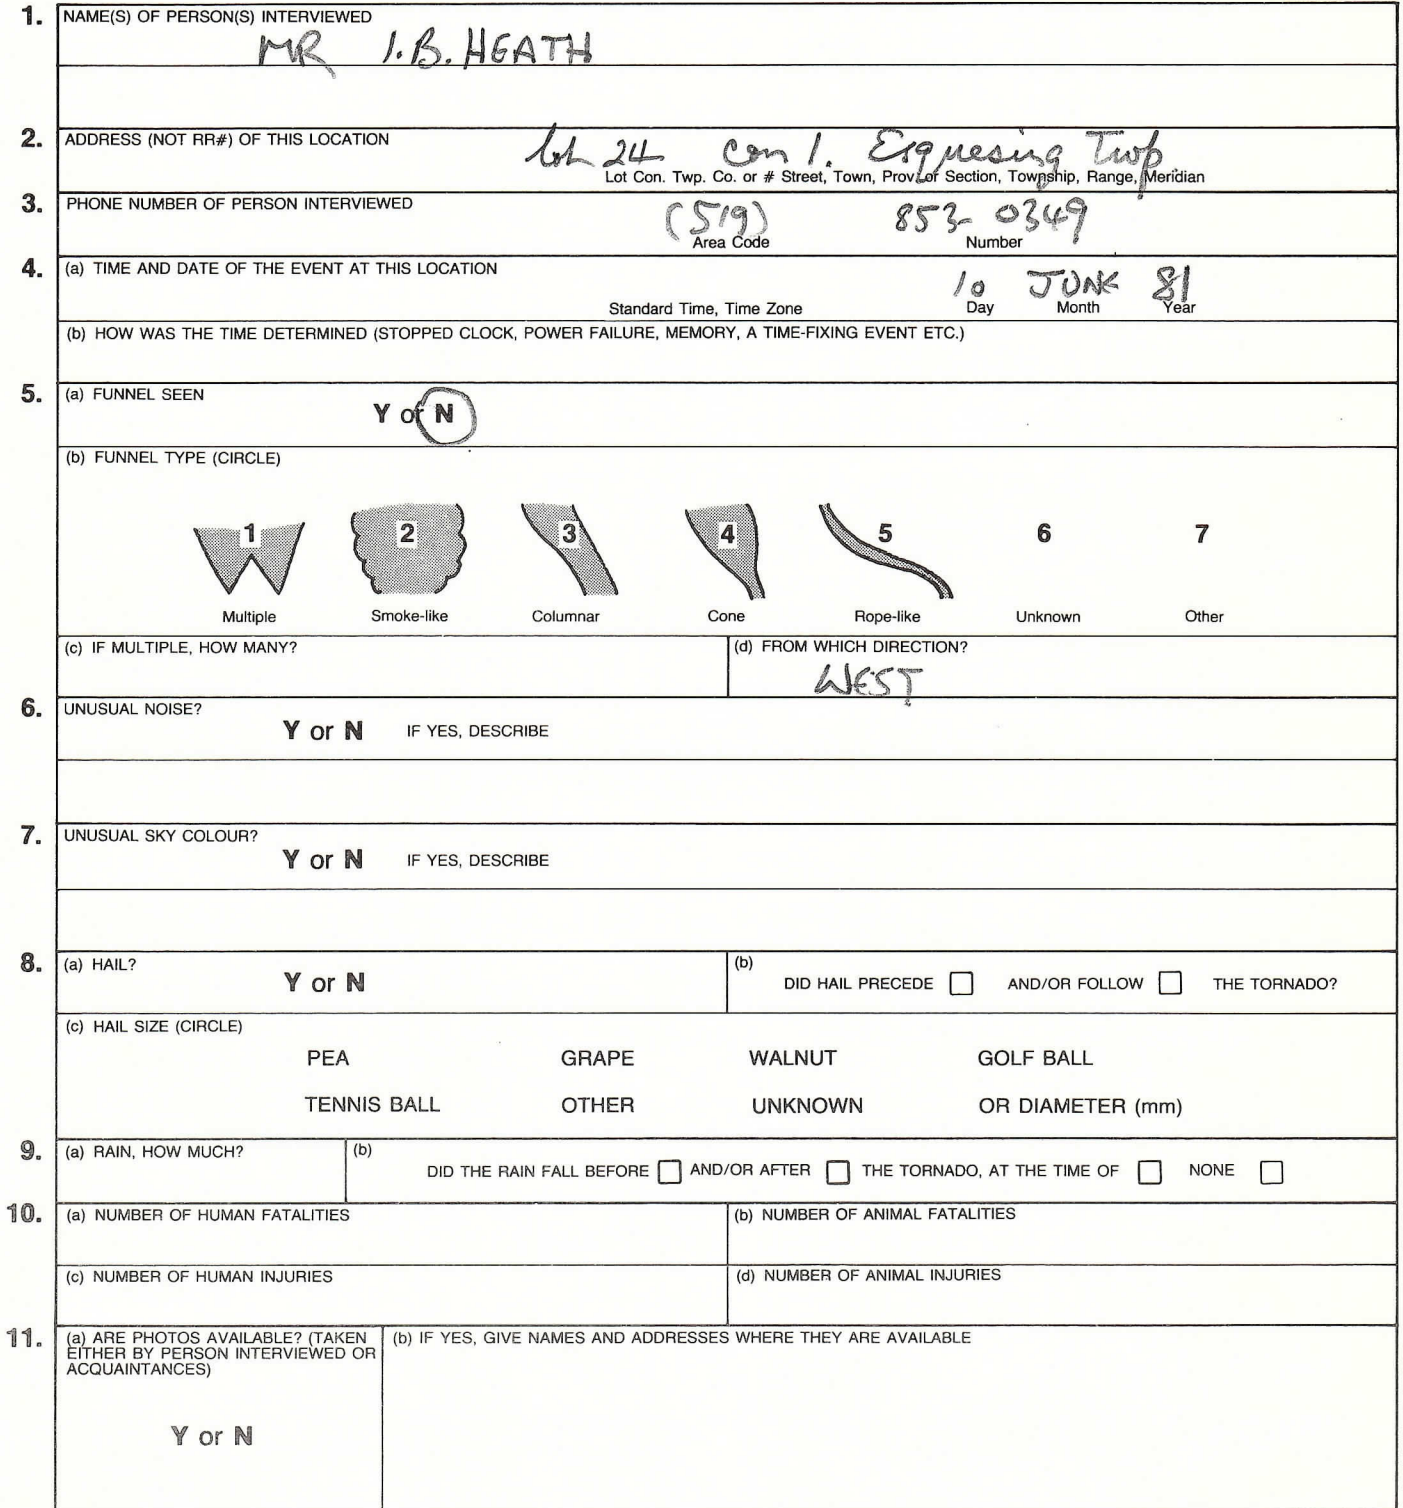 1. NAME(S) OF PERSON(S) INTERVIEWED
MR I.B. HEATH
2. ADDRESS (NOT RR#) OF THIS LOCATION
lot 24 con 1. Esquesing Twp
Lot Con. Twp. Co. or # Street, Town, Prov. or Section, Township, Range, Meridian
3. PHONE NUMBER OF PERSON INTERVIEWED
(519) 853-0349
Area Code Number
4. (a) TIME AND DATE OF THE EVENT AT THIS LOCATION
10 JUNE 81
Standard Time, Time Zone Day Month Year
(b) HOW WAS THE TIME DETERMINED (STOPPED CLOCK, POWER FAILURE, MEMORY, A TIME-FIXING EVENT ETC.)
5. (a) FUNNEL SEEN
Y or N
(b) FUNNEL TYPE (CIRCLE)
1 2 3 4 5 6 7
Multiple Smoke-like Columnar Cone Rope-like Unknown Other
(c) IF MULTIPLE, HOW MANY? (d) FROM WHICH DIRECTION?
WEST
6. UNUSUAL NOISE?
Y or N IF YES, DESCRIBE
7. UNUSUAL SKY COLOUR?
Y or N IF YES, DESCRIBE
8. (a) HAIL? (b)
Y or N DID HAIL PRECEDE AND/OR FOLLOW THE TORNADO?
(c) HAIL SIZE (CIRCLE)
PEA GRAPE WALNUT GOLF BALL
TENNIS BALL OTHER UNKNOWN OR DIAMETER (mm)
9. (a) RAIN, HOW MUCH? (b)
DID THE RAIN FALL BEFORE AND/OR AFTER THE TORNADO, AT THE TIME OF NONE
10. (a) NUMBER OF HUMAN FATALITIES (b) NUMBER OF ANIMAL FATALITIES
(c) NUMBER OF HUMAN INJURIES (d) NUMBER OF ANIMAL INJURIES
11. (a) ARE PHOTOS AVAILABLE? (TAKEN (b) IF YES, GIVE NAMES AND ADDRESSES WHERE THEY ARE AVAILABLE
EITHER BY PERSON INTERVIEWED OR
ACQUAINTANCES)
Y or N